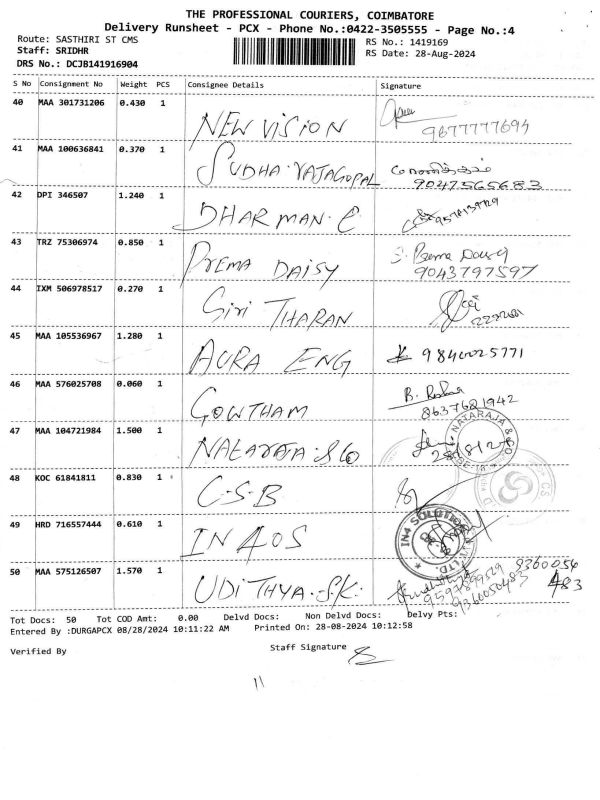 THE PROFESSIONAL COURIERS, COIMBATORE
Delivery Runsheet - PCX - Phone No.:0422-3505555 - Page No.:4
Route: SASTHIRI ST CMS
RS No.: 1419169
Staff: SRIDHR
RS Date: 28-Aug-2024
DRS No.: DCJB141916904
S No Consignment No Weight PCS Consignee Details Signature
40 MAA 301731206 0.430 1 NEW VISION 9677777694
41 MAA 100636841 0.370 1 SUDHA.RAJAGOPAL 9047565683
42 DPI 346507 1.240 1 DHARMAN.C
43 TRZ 75306974 0.850 1 PREMA DAISY 9043797597
44 IXM 506978517 0.270 1 Giri THARAN
45 MAA 105536967 1.280 1 AURA ENG 9840025771
46 MAA 576025708 0.060 1 GOWTHAM 8637681942
47 MAA 104721984 1.500 1 NATARAJA & CO NATARAJA & CO
48 KOC 61841811 0.830 1 C-S-B
49 HRD 716557444 0.610 1 IN4OS IN4 SOLUTION LTD.
50 MAA 575126507 1.570 1 UDITHYA.S.K. 9597899529 9360056 483
9360050483
Tot Docs: 50 Tot COD Amt: 0.00 Delvd Docs: Non Delvd Docs: Delvy Pts:
Entered By :DURGAPCX 08/28/2024 10:11:22 AM Printed On: 28-08-2024 10:12:58
Verified By Staff Signature